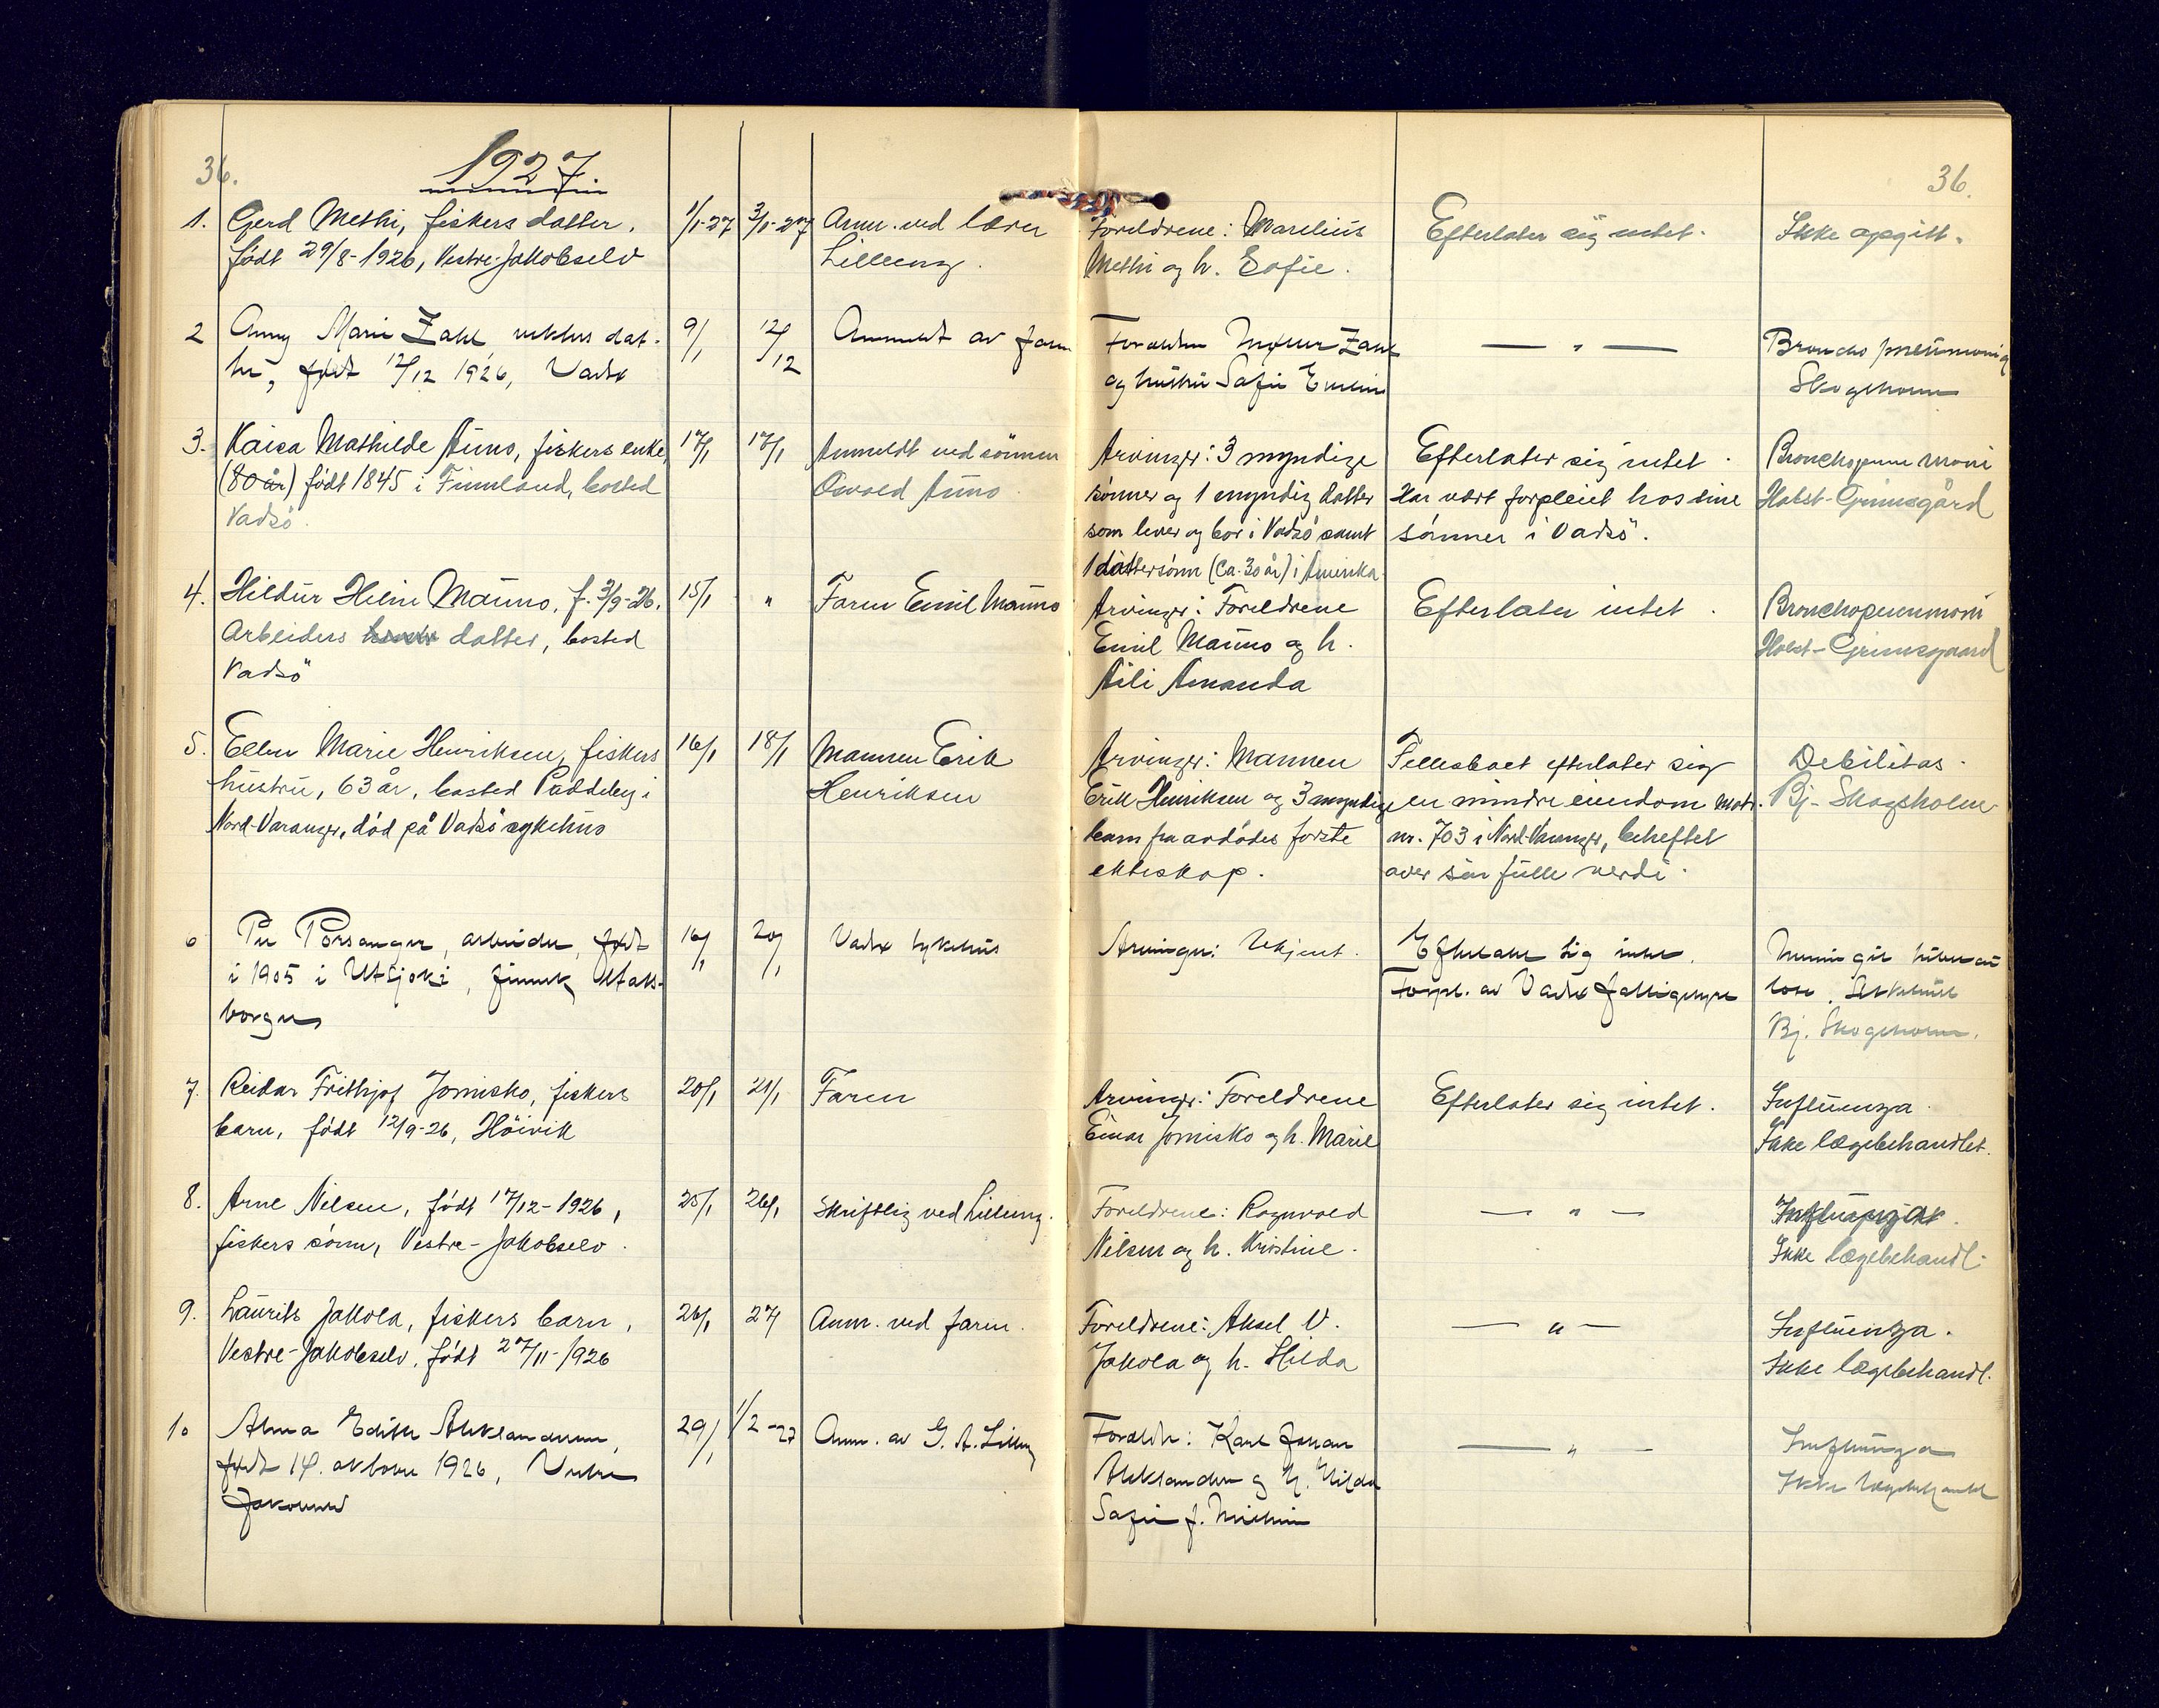 36.
1927
36.
1. Gerd Methi, fiskers datter,
født 29/8-1926, Vestre-Jakobselv
1/1-27
3/1-27
Anm. ved lærer
Lilleeng.
Foreldrene: Marelius
Methi og h. Sofie.
Efterlater sig intet.
Ikke opgitt.
2 Anny Marie Zahl, dat-
ter, født 12/12 1926, Vadsø
9/1
12/12
Anmeldt av faren
Foreldre Zahl
og hustru Sofie
— " —
Broncho pneumoni
Skogsholm
3. Kaisa Mathilde Auno, fiskers enke,
(80 år) født 1845 i Finnland, bosted
Vadsö.
17/1
17/1
Anmeldt ved sönnen
Osvald Auno.
Arvinger: 3 myndige
sönner og 1 myndig datter
som lever og bor i Vadsö samt
1 dattersönn (ca. 30 år) i Amerika.
Efterlater sig intet.
Har vært forpleiet hos sine
sönner i Vadsö.
Bronchopneumoni
Holst-Grimsgård
4. Hildur Helni Mauno, f. 3/9-26,
Arbeiders datter, bosted
Vadsö
15/1
"
Faren Emil Mauno
Arvinger: Foreldrene
Emil Mauno og h.
Aili Amanda
Efterlater intet.
Bronchopneumoni
Holst-Grimsgaard
5. Ellen Marie Henriksen, fiskers
hustru, 63 år, bosted Paddeby i
Nord-Varanger, död på Vadsö sykehus
16/1
18/1
Mannen Erik
Henriksen
Arvinger: Mannen
Erik Henriksen og 3 myndige
barn fra avdödes förste
ekteskap.
Fellesboet efterlater sig
en mindre eiendom matr.
nr. 703 i Nord-Varanger, beheftet
over sin fulle verdi.
Debilitas.
Bj. Skogsholm
6 Per Porsanger, arbeider, født
i 1905 i Utsjoki, finnsk stats-
borger
16/1
20/1
Vadsø sykehus
Arvinger: Ukjent.
Efterlater sig intet.
Forpl. av Vadsø fattigstyre
Meningit tuberculose.
Bj. Skogsholm.
7. Reidar Frithjof Jomisko, fiskers
barn, födt 12/9-26, Höivik
20/1
21/1
Faren
Arvinger: Foreldrene
Einar Jomisko og h. Marie
Efterlater sig intet.
Influenza.
Ikke lægebehandlet.
8. Arne Nilsen, födt 17/12-1926,
fiskers sönn, Vestre-Jakobselv.
25/1
26/1
Skriftlig ved Lilleeng.
Foreldrene: Ragnvald
Nilsen og h. Kristine.
— " —
Ikke lægebehandl.
9. Laurits Jakola, fiskers barn,
Vestre-Jakobselv, födt 27/11-1926
26/1
27/1
Anm. ved faren.
Foreldrene: Aksel V.
Jakola og h. Hilda
— " —
Influenza.
Ikke lægebehandl.
10 Alma Edith Aleksandersen,
født 14. oktober 1926, Vestre
Jakobselv
29/1
1/2-27
Anm. av G. A. Lilleeng
Foreldre: Karl Johan
Aleksandersen og h. Hilda
Sofie f.
— " —
Influenza
Ikke lægebehandlet